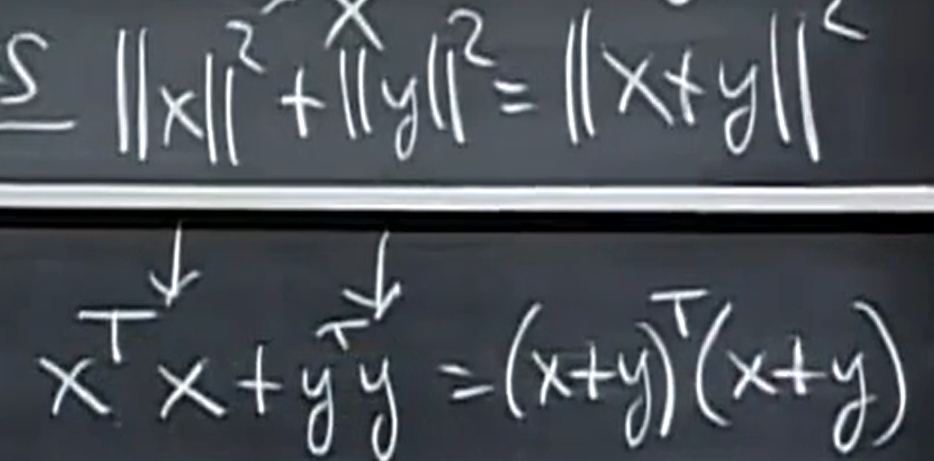 S ||x||² + ||y||² = ||x+y||²
xᵀx + yᵀy = (x+y)ᵀ(x+y)